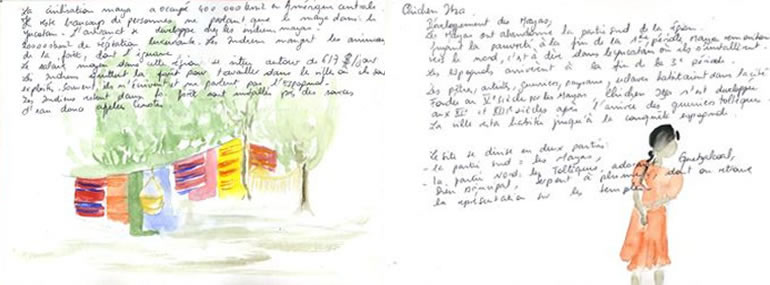 La civilisation maya a occupé 400 000 km² en Amérique centrale
Il reste beaucoup de personnes ne parlant que le maya dans le
Yucatan. L'artisanat se développe chez les indiens mayas.
de végétation luxuriante. Les Indiens mangent les animaux
de la forêt, dont l'iguane.
Le salaire moyen dans cette région se situe autour de 6/7 $/jour
Les Indiens quittent la forêt pour travailler dans la ville où ils sont
exploités. Souvent, ils n'écrivent et ne parlent pas l'espagnol.
Les Indiens vivant dans la forêt sont installés près des sources
d'eau douce appelées Cenotes
Chichen Itza
Développement des Mayas,
Les Mayas ont abandonné la partie sud de la région
fuyant la pauvreté à la fin de la 1ère période Mayas
vers le nord, c'est à dire dans le yucatan où ils s'installent.
Les espagnols arrivèrent à la fin de la 3e période.
Les prêtres, artistes, guerriers, paysans, esclaves habitaient dans la cité
Fondée au Ve siècle par les Mayas Chichen Itza s'est développée
aux XIe et XIIIe siècles après l'arrivée des guerriers toltèques.
La ville resta habitée jusqu'à la conquête espagnole.
Le site se divise en deux parties:
- la partie sud: les Mayas,
- la partie Nord: les Toltèques, Quetzalcoatl,
Dieu principal, serpent à plumes dont on retrouve
la représentation sur les temples